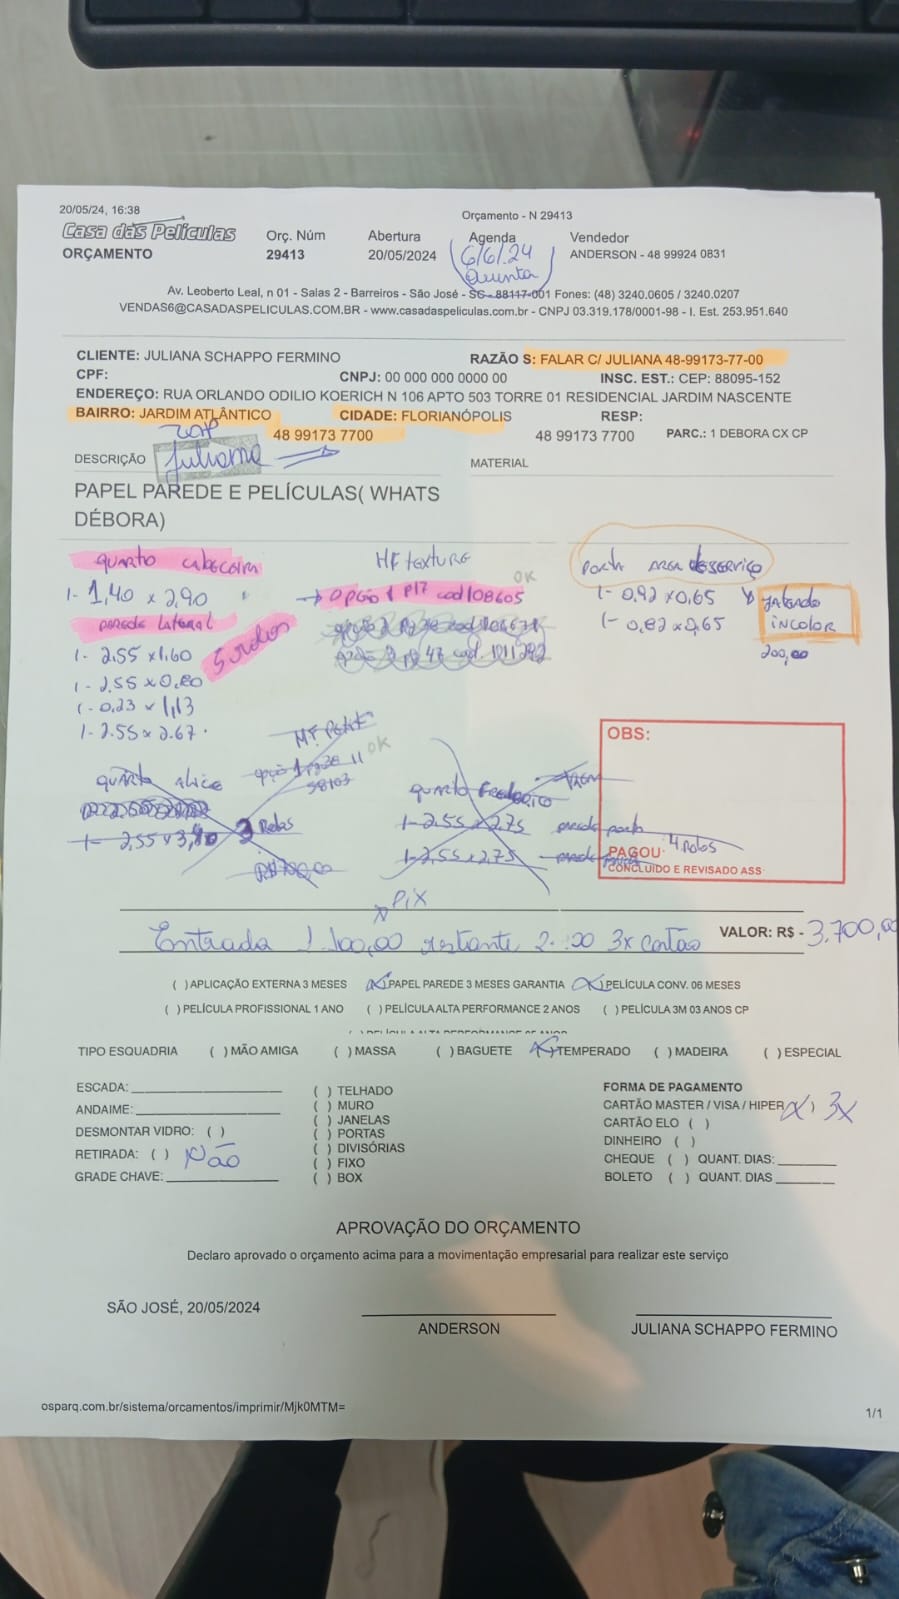 20/05/24, 16:38
Orçamento - N 29413
Casa das Películas
Orç. Núm Abertura Agenda Vendedor
ORÇAMENTO 29413 20/05/2024 6/6/24 ANDERSON - 48 99924 0831
Quinta
Av. Leoberto Leal, n 01 - Salas 2 - Barreiros - São José - SC - 88117-001 Fones: (48) 3240.0605 / 3240.0207
VENDAS6@CASADASPELICULAS.COM.BR - www.casadaspeliculas.com.br - CNPJ 03.319.178/0001-98 - I. Est. 253.951.640
CLIENTE: JULIANA SCHAPPO FERMINO RAZÃO S: FALAR C/ JULIANA 48-99173-77-00
CPF: CNPJ: 00 000 000 0000 00 INSC. EST.: CEP: 88095-152
ENDEREÇO: RUA ORLANDO ODILIO KOERICH N 106 APTO 503 TORRE 01 RESIDENCIAL JARDIM NASCENTE
BAIRRO: JARDIM ATLÂNTICO CIDADE: FLORIANÓPOLIS RESP:
ZAP 48 99173 7700 48 99173 7700 PARC.: 1 DEBORA CX CP
DESCRIÇÃO Juliana MATERIAL
PAPEL PAREDE E PELÍCULAS( WHATS
DÉBORA)
quarto cabeceira HF texture porta area de serviço
OK
1- 1,40 x 2,90 → opção 1 P17 cod 108605 1- 0,92 x 0,65 jateado
parede lateral 1- 0,82 x 2,65 incolor
5 rolos
1- 2.55 x 1.60 200,00
1- 2,55 x 0,80
1- 0,23 x 1,13
1- 2.55 x 2.67
OBS:
OK
quarto alice opção 1 58103
quarto Frederico
1- 2,55 x 3,90 3 Rolos 1- 2.55 x 2.75 parede porta
1- 2.55 x 2.75 4 Rolos
PAGOU:
CONCLUÍDO E REVISADO ASS
PIX
Entrada 1.100,00 restante 3x Cartão VALOR: R$ - 3.700,00
( ) APLICAÇÃO EXTERNA 3 MESES (X) PAPEL PAREDE 3 MESES GARANTIA (X) PELÍCULA CONV. 06 MESES
( ) PELÍCULA PROFISSIONAL 1 ANO ( ) PELÍCULA ALTA PERFORMANCE 2 ANOS ( ) PELÍCULA 3M 03 ANOS CP
TIPO ESQUADRIA ( ) MÃO AMIGA ( ) MASSA ( ) BAGUETE (X) TEMPERADO ( ) MADEIRA ( ) ESPECIAL
ESCADA: ( ) TELHADO FORMA DE PAGAMENTO
ANDAIME: ( ) MURO CARTÃO MASTER / VISA / HIPER (X) 3x
( ) JANELAS CARTÃO ELO ( )
DESMONTAR VIDRO: ( ) ( ) PORTAS DINHEIRO ( )
RETIRADA: ( ) Não ( ) DIVISÓRIAS CHEQUE ( ) QUANT. DIAS:
( ) FIXO
GRADE CHAVE: ( ) BOX BOLETO ( ) QUANT. DIAS
APROVAÇÃO DO ORÇAMENTO
Declaro aprovado o orçamento acima para a movimentação empresarial para realizar este serviço
SÃO JOSÉ, 20/05/2024
ANDERSON JULIANA SCHAPPO FERMINO
osparq.com.br/sistema/orcamentos/imprimir/Mjk0MTM=
1/1